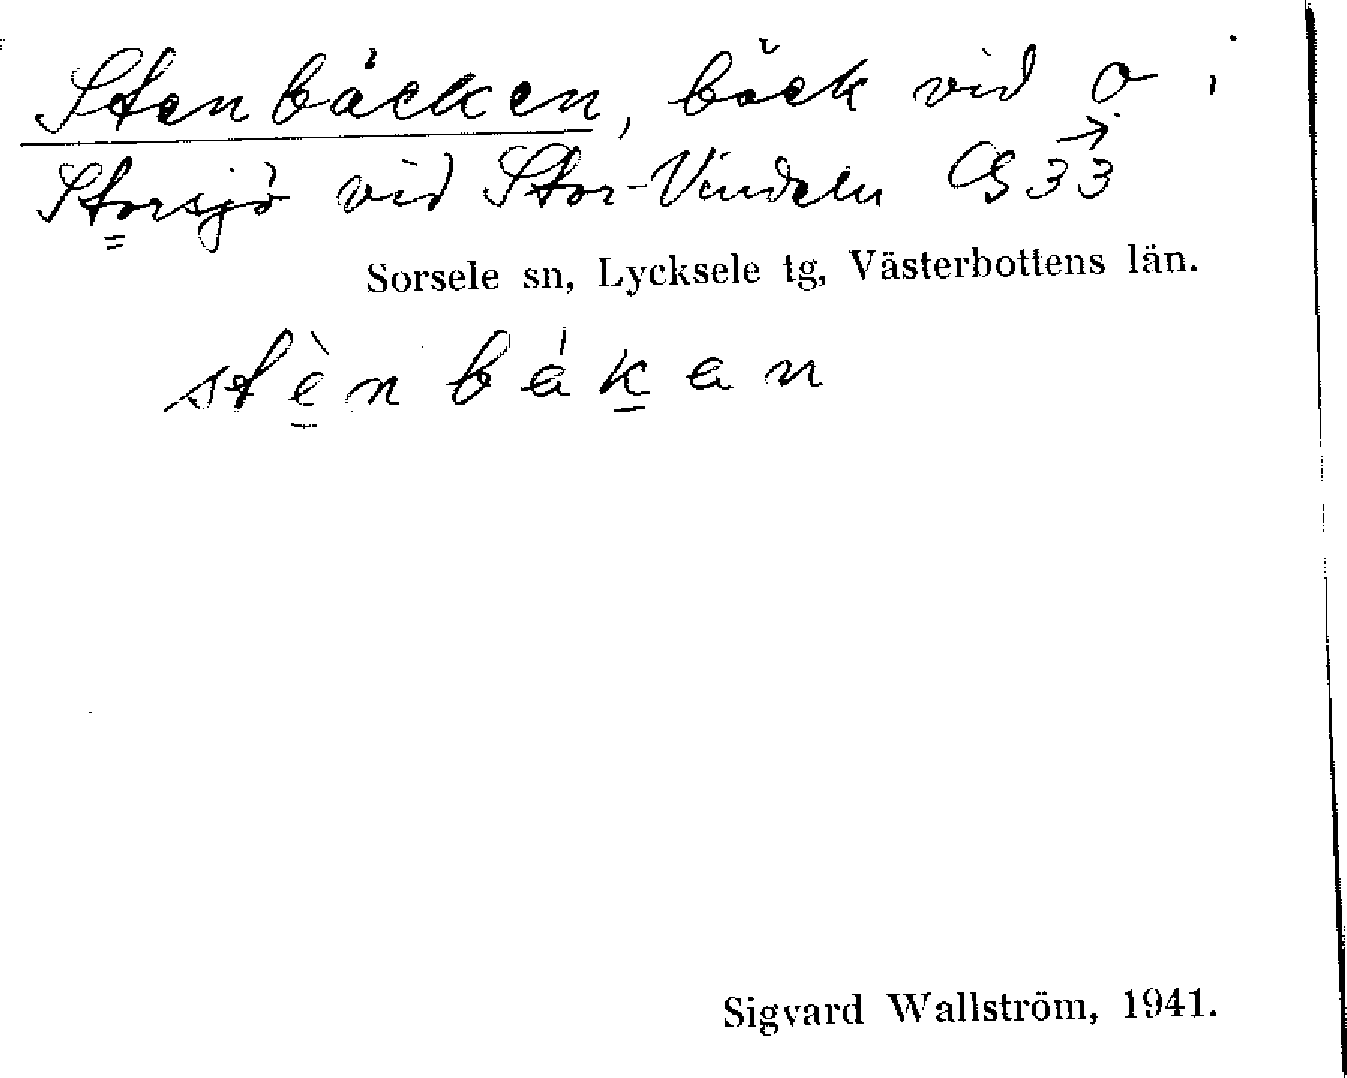 Stenbäcken, bäck vid o i
Storsjö vid Stor-Vindeln CG 33
Sorsele sn, Lycksele tg, Västerbottens län.
stènbákan
Sigvard Wallström, 1941.